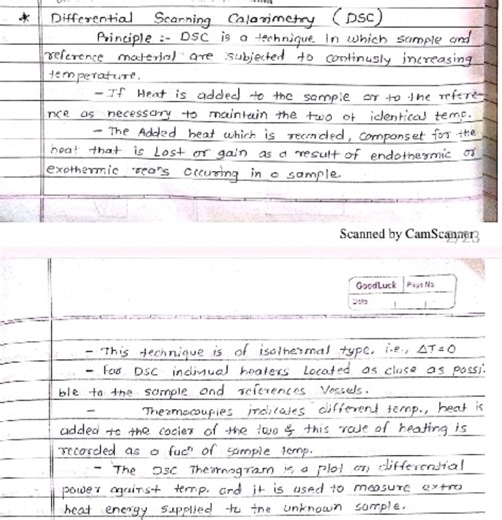 * Differential Scanning Calarimetry (DSC)
Principle :- DSC is a technique in which sample and
reference material are subjected to continusly increasing
temperature.
- If Heat is added to the sample or to the refere-
nce as necessary to maintain the two at identical temp.
- The Added heat which is recorded, companset for the
heat that is Lost or gain as a result of endothermic or
exothermic reac's occuring in a sample.
Scanned by CamScanner
2/23
GoodLuck Page No
Date
- This technique is of isothermal type, i.e., ΔT=0
- For DSC indivual heaters Located as close as possi-
ble to the sample and references Vessels.
- Thermocouples indicates different temp., heat is
added to the cooler of the two & this rate of heating is
recorded as a fucⁿ of sample temp.
- The DSC Thermogram is a plot on differential
power against temp. and it is used to measure extra
heat energy supplied to the unknown sample.